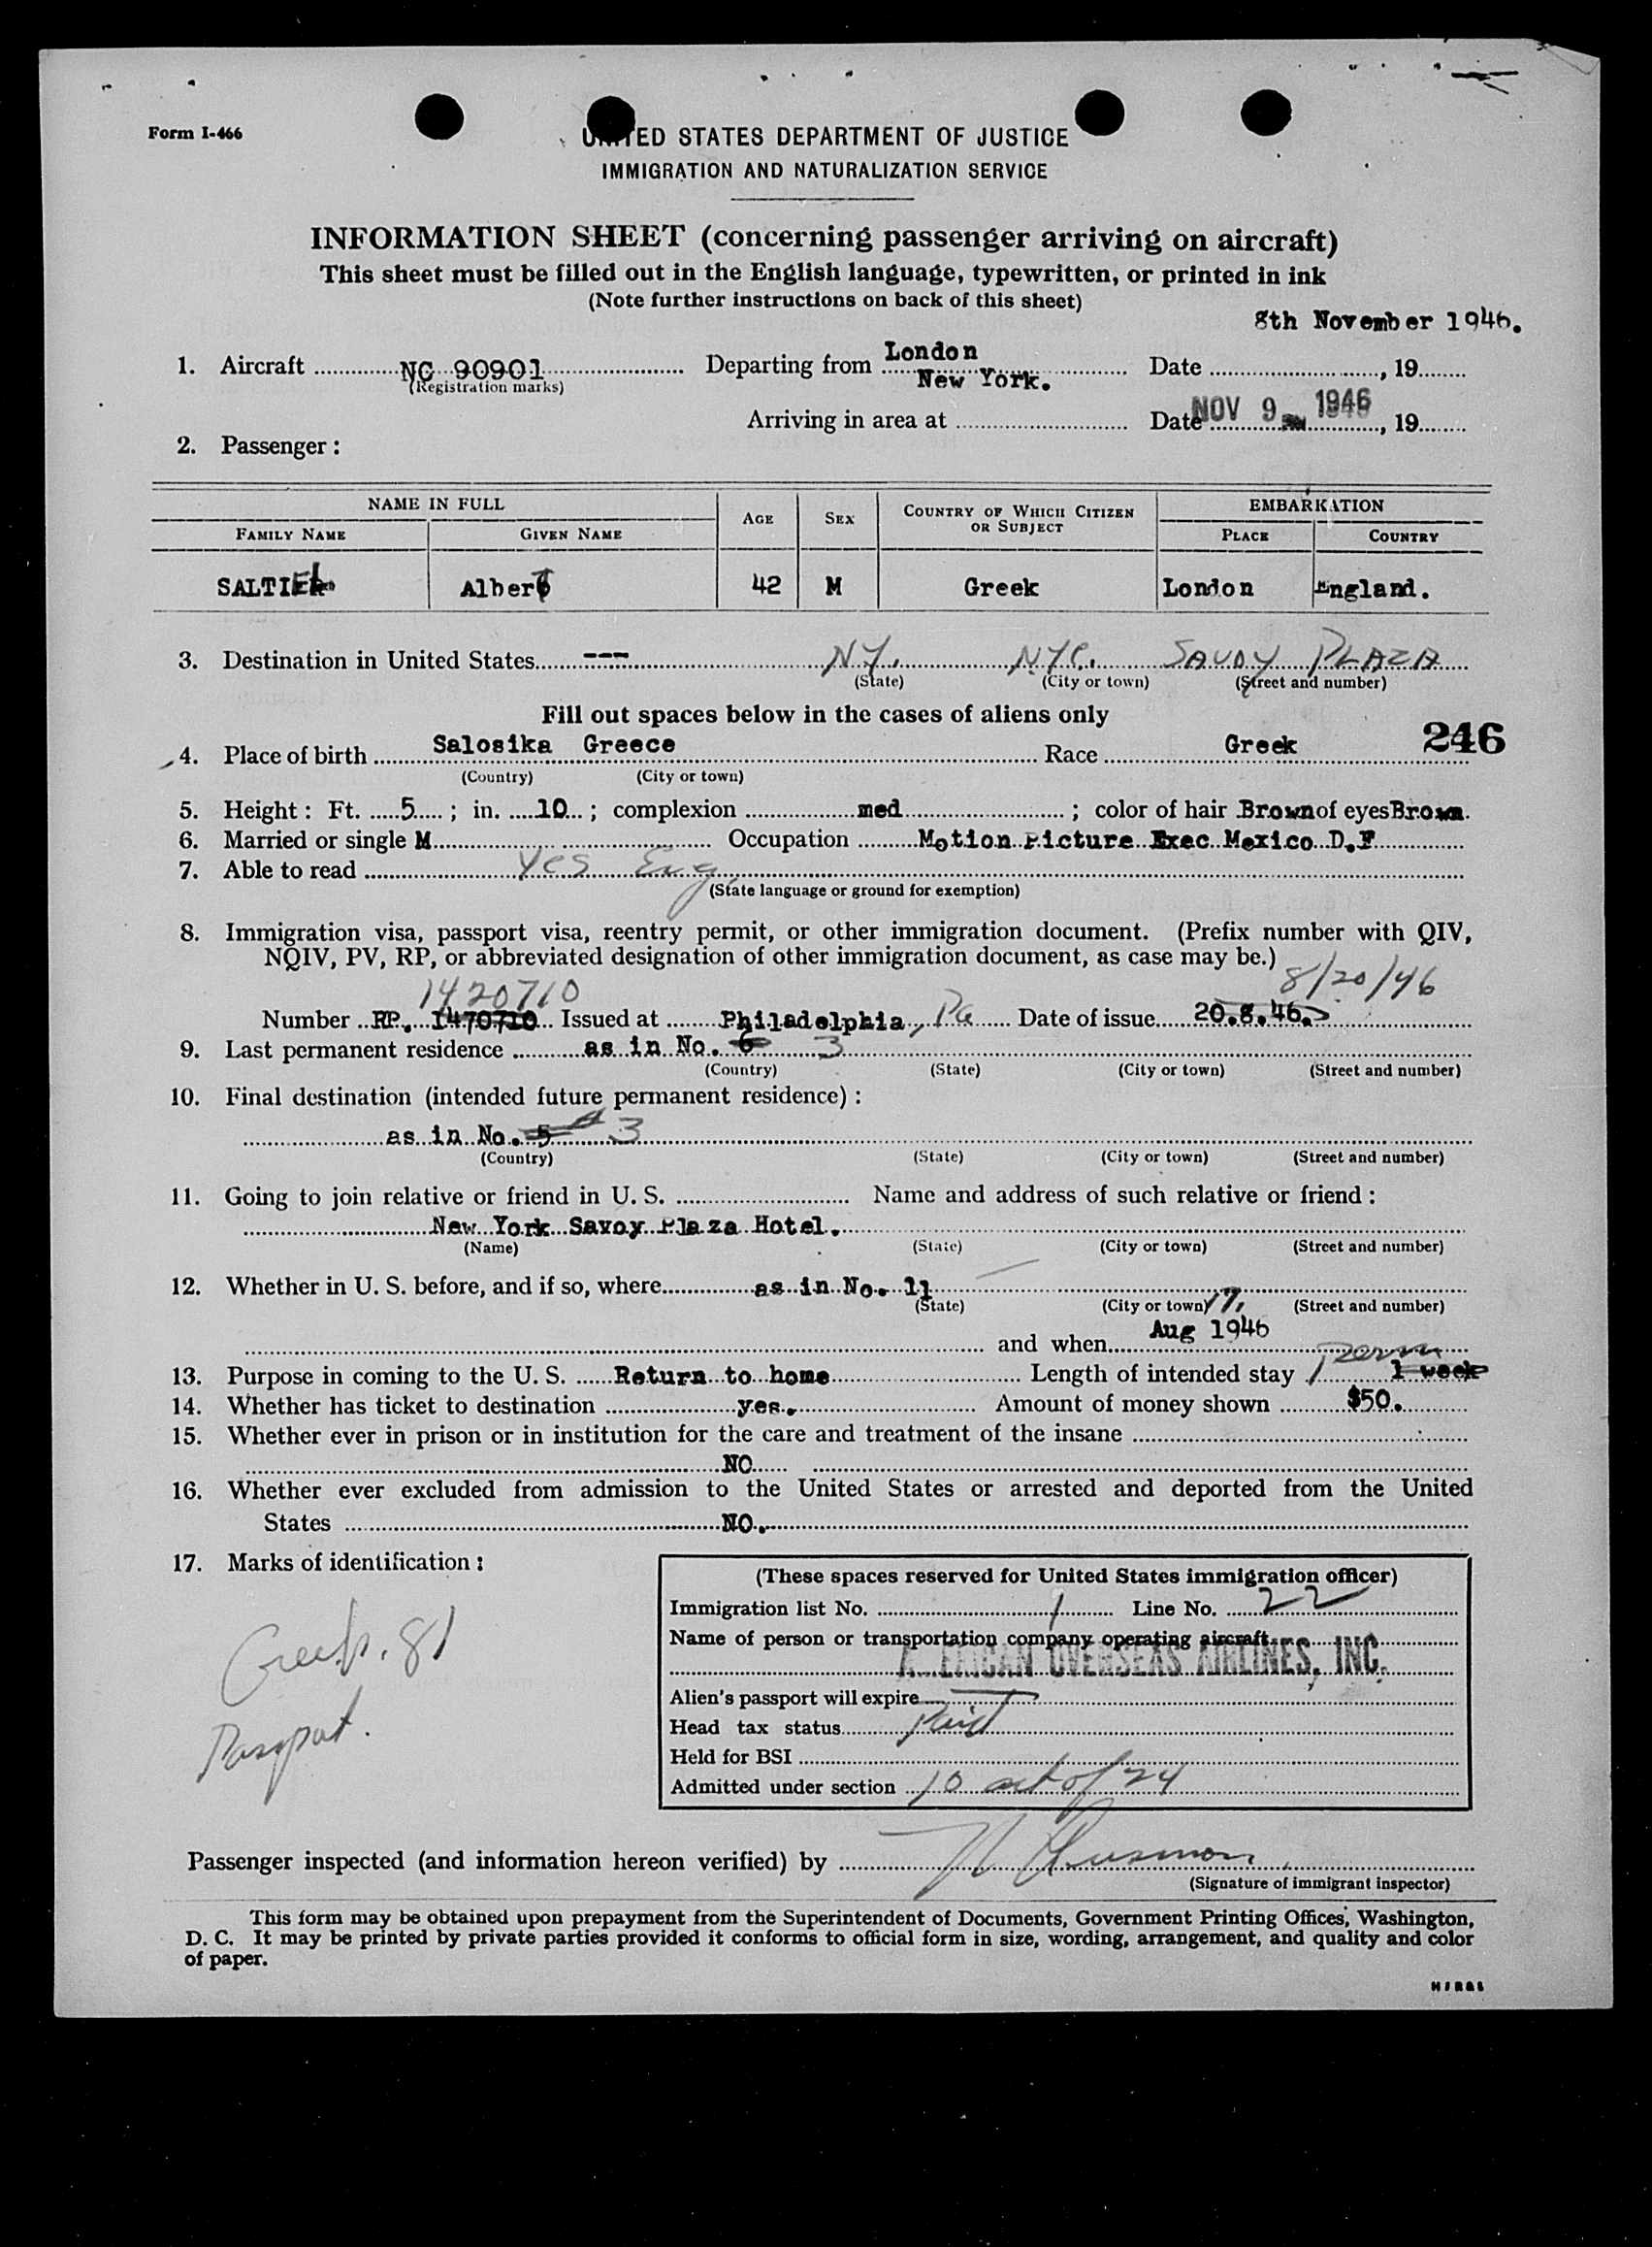 Form I-466
UNITED STATES DEPARTMENT OF JUSTICE
IMMIGRATION AND NATURALIZATION SERVICE
INFORMATION SHEET (concerning passenger arriving on aircraft)
This sheet must be filled out in the English language, typewritten, or printed in ink
(Note further instructions on back of this sheet)
8th November 1946.
1. Aircraft NC 90901 Departing from London Date , 19
(Registration marks) New York.
Arriving in area at Date NOV 9 1946 , 19
2. Passenger:
NAME IN FULL AGE SEX COUNTRY OF WHICH CITIZEN OR SUBJECT EMBARKATION
FAMILY NAME GIVEN NAME PLACE COUNTRY
SALTIEL Albert 42 M Greek London England.
3. Destination in United States --- NY. NYC. SAVOY PLAZA
(State) (City or town) (Street and number)
Fill out spaces below in the cases of aliens only
246
4. Place of birth Salosika Greece Race Greek
(Country) (City or town)
5. Height: Ft. 5 ; in. 10 ; complexion med ; color of hair Brown of eyes Brown.
6. Married or single M Occupation Motion Picture Exec Mexico D.F
7. Able to read Yes Eng.
(State language or ground for exemption)
8. Immigration visa, passport visa, reentry permit, or other immigration document. (Prefix number with QIV,
NQIV, PV, RP, or abbreviated designation of other immigration document, as case may be.)
1420710 8/20/46
Number RP. 1470710 Issued at Philadelphia, Pa Date of issue 20.8.46.
9. Last permanent residence as in No. 6 3
(Country) (State) (City or town) (Street and number)
10. Final destination (intended future permanent residence):
as in No. 5 3
(Country) (State) (City or town) (Street and number)
11. Going to join relative or friend in U. S. Name and address of such relative or friend:
New York Savoy Plaza Hotel.
(Name) (State) (City or town) (Street and number)
12. Whether in U. S. before, and if so, where as in No. 11
(State) (City or town) 17, (Street and number)
and when Aug 1946
13. Purpose in coming to the U. S. Return to home Length of intended stay 1 week Perm
14. Whether has ticket to destination yes. Amount of money shown $50.
15. Whether ever in prison or in institution for the care and treatment of the insane
NO
16. Whether ever excluded from admission to the United States or arrested and deported from the United
States NO.
17. Marks of identification:
Greek. 81
Passport.
(These spaces reserved for United States immigration officer)
Immigration list No. 1 Line No. 22
Name of person or transportation company operating aircraft
AMERICAN OVERSEAS AIRLINES, INC.
Alien's passport will expire
Head tax status Paid
Held for BSI
Admitted under section 10 act of 24
Passenger inspected (and information hereon verified) by
(Signature of immigrant inspector)
This form may be obtained upon prepayment from the Superintendent of Documents, Government Printing Offices, Washington,
D. C. It may be printed by private parties provided it conforms to official form in size, wording, arrangement, and quality and color
of paper.